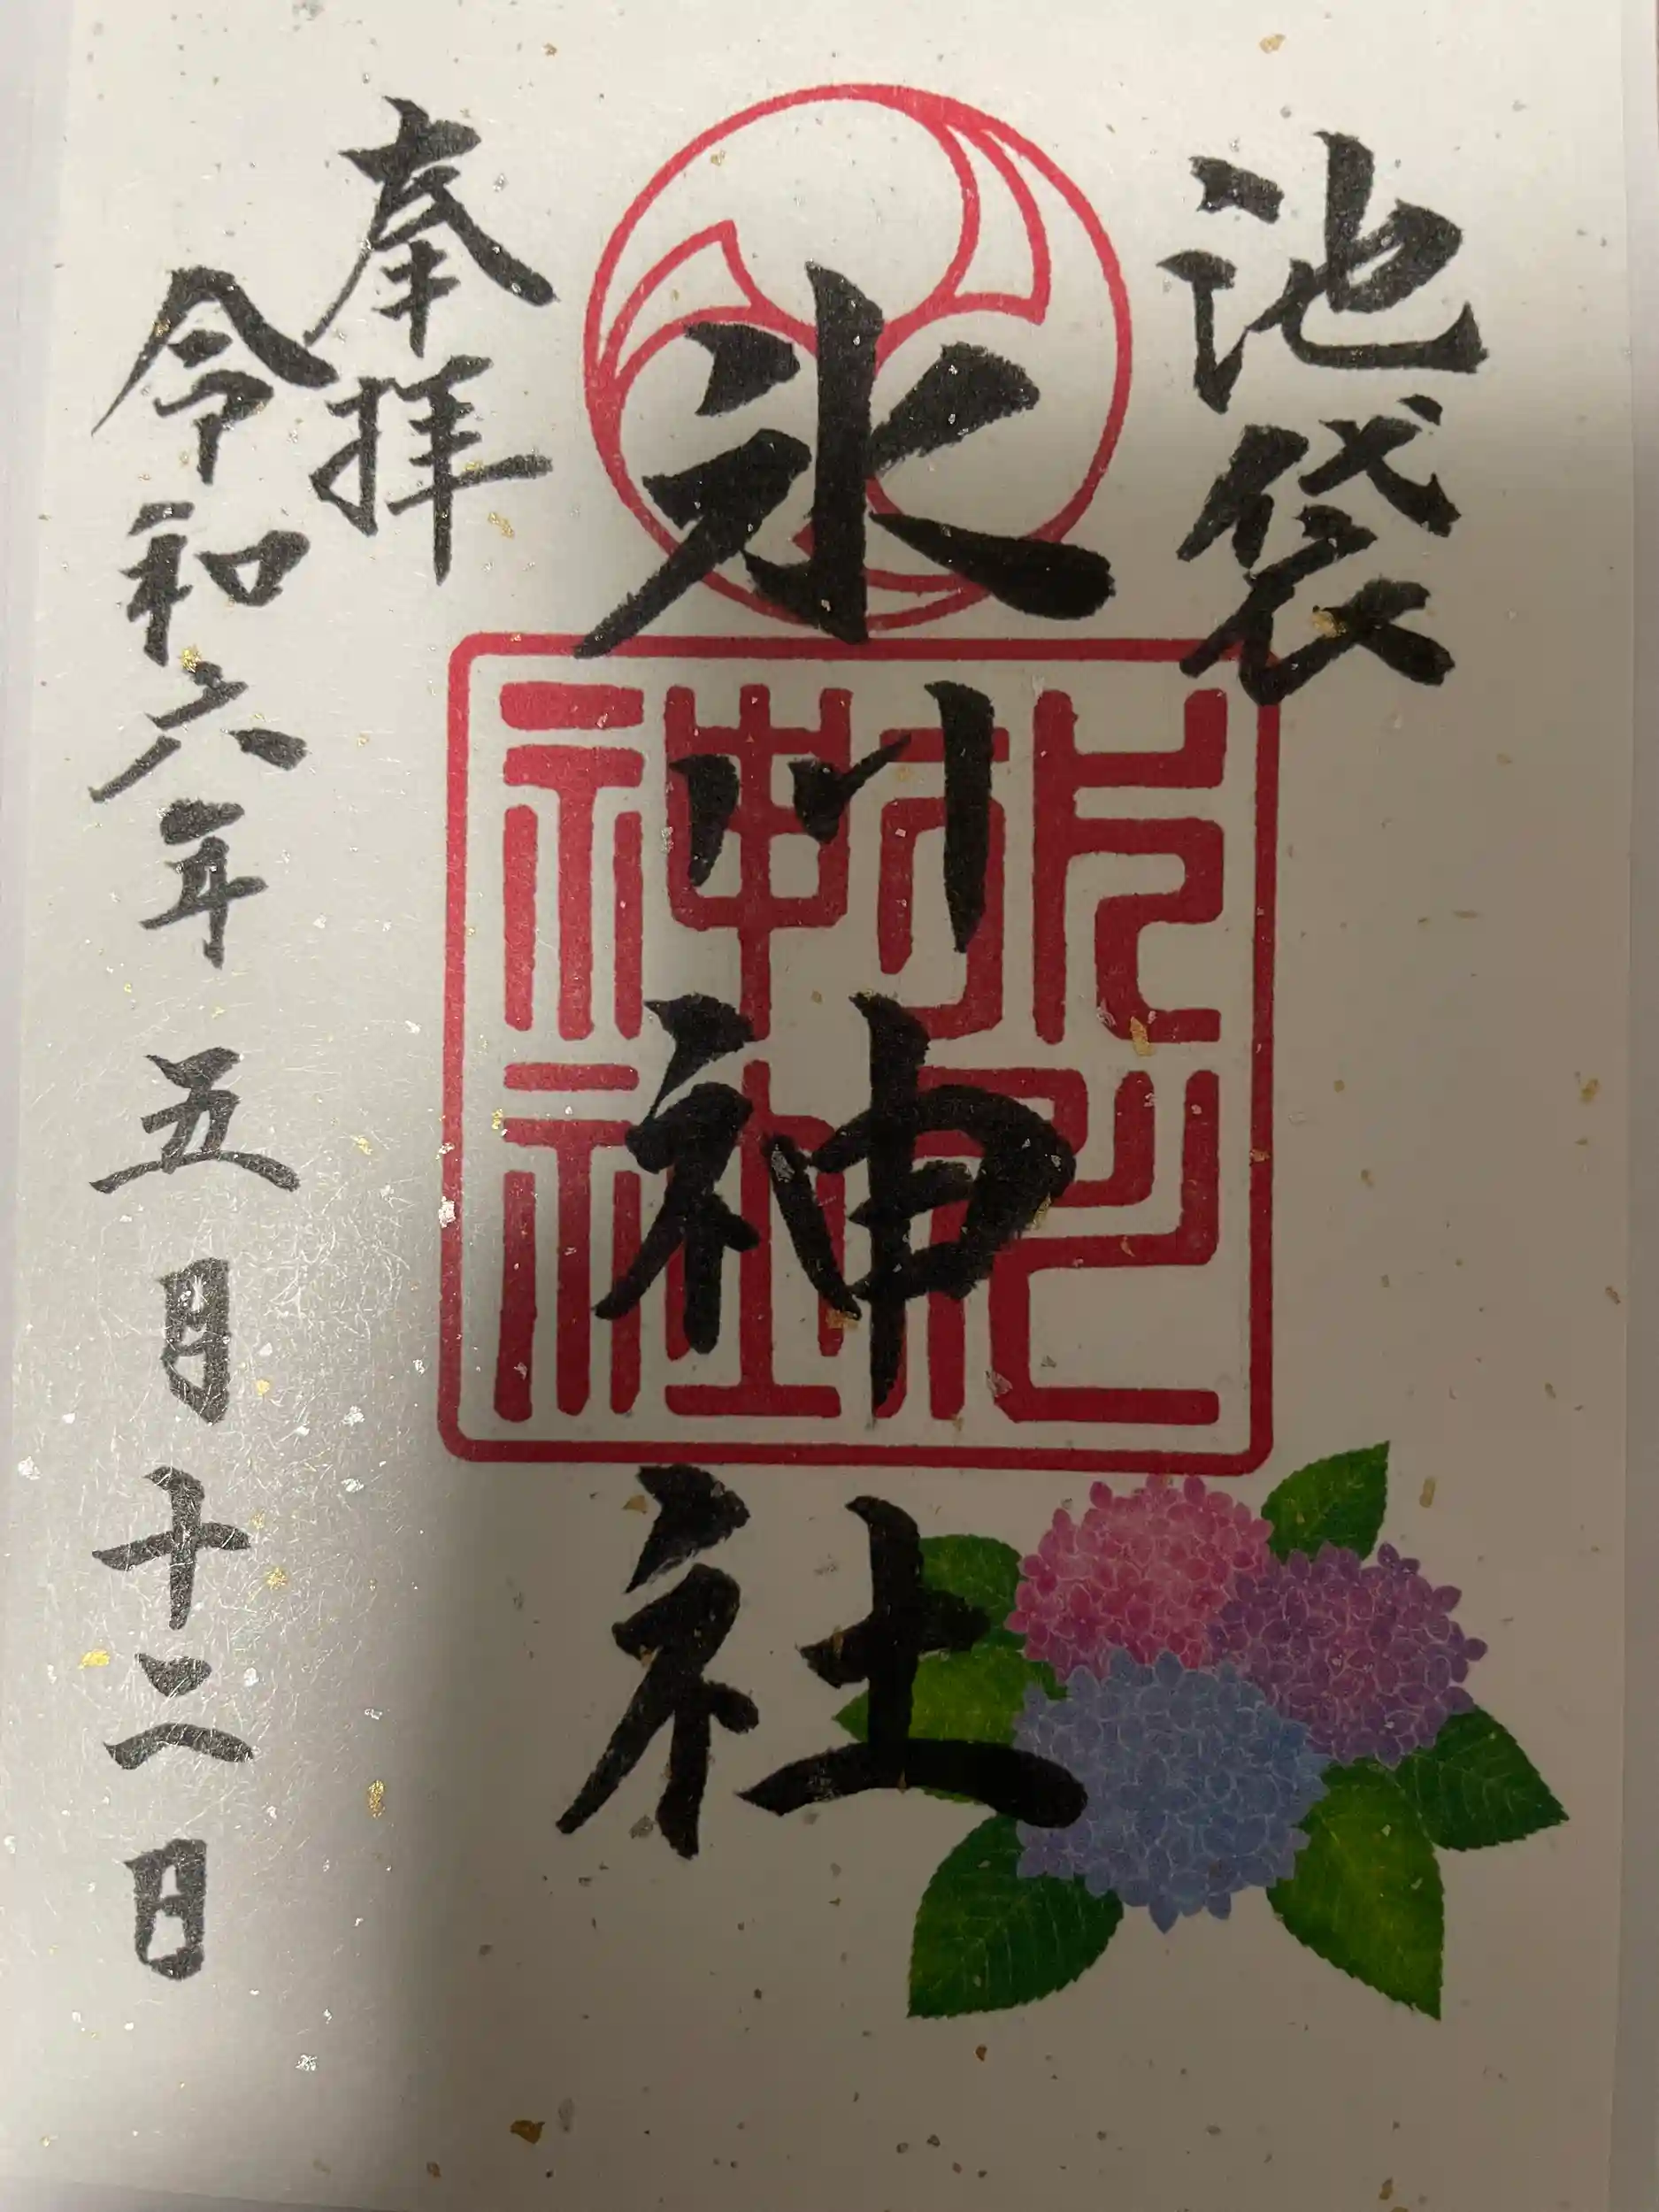 池袋
氷川神社
奉拝
令和六年五月十二日
氷川神社